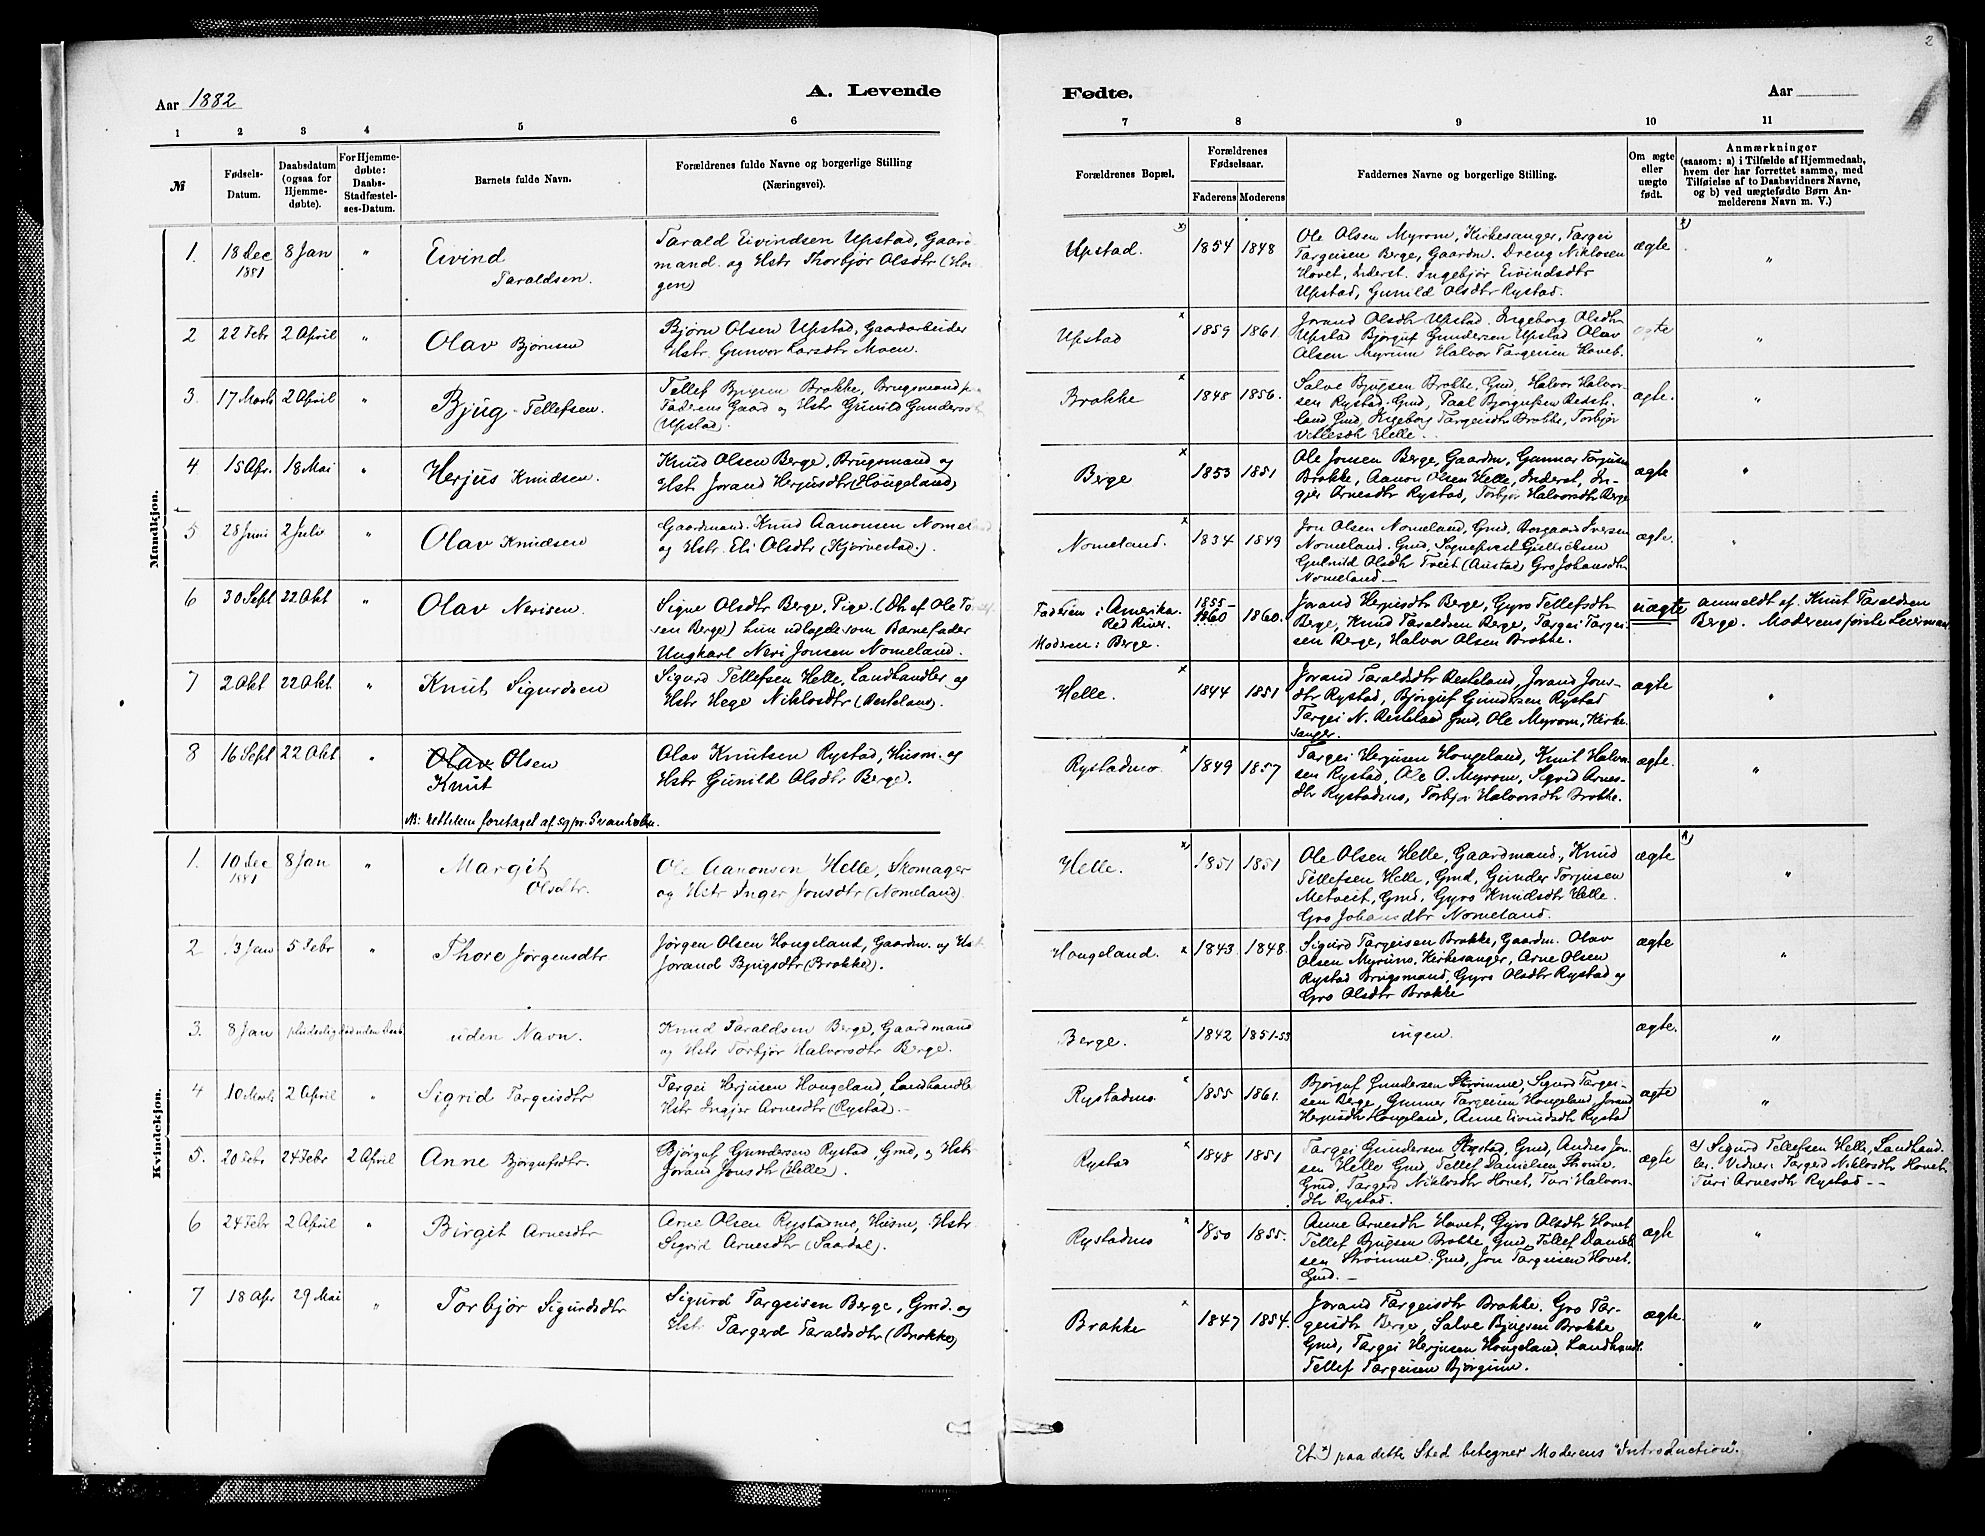 2
Aar 1882
A. Levende
Fødte.
Aar
1 2 3 4 5 6 7 8 9 10 11
№
Fødsels-
Datum.
Daabsdatum
(ogsaa for
Hjemme-
døbte).
For Hjemme-
døbte:
Daabs-
Stadfæstel-
ses-Datum.
Barnets fulde Navn.
Forældrenes fulde Navne og borgerlige Stilling
(Næringsvei).
Forældrenes Bopæl.
Forældrenes
Fødselsaar.
Faderens Moderens
Faddernes Navne og borgerlige Stilling.
Om ægte
eller
uægte
født.
Anmærkninger
(saasom: a) i Tilfælde af Hjemmedaab,
hvem der har forrettet samme, med
Tilføielse af to Daabsvidners Navne,
og b) ved uægtefødte Børn An-
melderens Navn m. V.)
Mandkjøn.
1. 18 Dec 8 Jan "
1881
Eivind
Taraldsen.
Tarald Eivindsen Upstad, Gaard
mand. og Hstr Thorbjør Olsdtr (Hou
gen)
Upstad. x) 1854 1848
Ole Olsen Myrom, Kirkesanger, Targei
Targeisen Berge, Gaardm. Dreng Niklosen
Hovet, Inderst. Ingebjør Eivindsdtr
Upstad, Gunild Olsdtr Rystad.
ægte "
2 22 Febr 2 April "
Olav Bjørnsen
Bjørn Olsen Upstad, Gaardarbeider
Hstr. Gunvor Larsdtr Moen.
Upstad x 1859 1861.
Jorand Olsdtr Upstad. Ingeborg Olsdtr
Upstad Bjørguf Gundersen Upstad Olav
Olsen Myrum Halvor Targeisen Hovet.
ægte "
3. 17 Marts 2 April "
Bjug Tellefsen.
Tellef Bjugsen Brokke, Brugsmand
Faderens Gaard og Hstr Gunild Gundersdt
(Upstad).
Brokke x 1848 1856.
Salve Bjugsen Brokke, Gmd, Halvor Halvor-
sen Rystad. Gmd, Paal Bjørgufsen
land Gmd, Ingeborg Targeisdtr Brokke, Torbjør
Helle.
ægte. "
4 15 Apr. 18 Mai "
Herjus Knudsen.
Knud Olsen Berge, Brugsmand og
Hstr Jorand Herjusdtr (Hougeland)
Berge x 1853 1851
Ole Jonsen Berge, Gaardm, Gunnar Torjusen
Brokke, Aanon Olsen Helle, Inderst, In-
gjer Arnesdtr Rystad, Torbjør Halvorsdtr Berge
ægte "
5 28 Juni 2 Juli "
Olav Knudsen
Gaardmand. Knud Aanonsen Nomeland
og Hstr. Eli Olsdtr (Kjørnestad).
Nomeland. x 1834 1849
Jon Olsen Nomeland, Gmd, Borgaard Iversen
Nomeland. Gmd, Sognepræst
Gulnild Olsdtr Tveit (Austad) Gro Johansdtr
Nomeland.—
ægte. "
6 30 Sept 22 Okt "
Olav Nerisen.
Signe Olsdtr Berge, Pige. (Dtr af Ole
sen Berge) hun udlagde som Barnefader
Ungkarl Neri Jonsen Nomeland.
Faderen i Amerika.
Red River.
Moderen: Berge.
1855-
1860 1860.
Jorand Herjusdtr Berge, Gyro Tellefsdtr
Berge, Knud Taraldsen Berge, Targei Targei-
sen Berge, Halvor Olsen Brokke.
uægte
anmeldt af. Knut Taraldsen
Berge. Moderens første Leiermaal
7 2 Okt 22 Okt "
Knut Sigurdsen
Sigurd Tellefsen Helle, Landhandler og
Hstr Hege Niklosdtr (Besteland).
Helle. x 1844 1851
Jorand Taraldsdtr Besteland, Jorand Jons-
dtr Rystad, Bjørguf Gundersen Rystad
Targei N. Besteland Gmd, Ole Myrom, Kirke-
sanger.
ægte "
8 16 Sept 22 Okt "
Olav Olsen
Knut
NB: rettelsen foretaget af sgpr. Svanholm.
Olav Knutsen Rystad, Husm. og
Hstr Gunild Olsdtr Berge.
Rystadmo x 1849 1857
Targei Herjusen Hougeland, Knut Halvor
sen Rystad, Ole O. Myrom, Sigrid Arnes-
dtr Rystadmo, Torbjør Halvorsdtr Brokke.
ægte. "
Kvindekjøn.
1. 10 Dec 8 Jan "
1881
Margit
Olsdtr.
Ole Aanonsen Helle, Skomager
og Hstr Inger Jonsdtr (Nomeland).
Helle. x) 1851 1851
Ole Olsen Helle, Gaardmand, Knud
Tellefsen Helle, Gmd, Gunder Torjusen
Metveit, Gmd, Gyro Knudsdtr Helle.
Gro Johansdtr Nomeland.
ægte "
2 3 Jan 5 Febr "
Thore Jørgensdtr
Jørgen Olsen Hougeland, Gaardm. og Hst.
Jorand Bjugsdtr (Brokke).
Hougeland. x 1843 1848.
Sigurd Targeisen Brokke, Gaardm. Olav
Olsen Myrumo, Kirkesanger, Arne Olsen
Rystad Brugsmand, Gyro Olsdtr Rystad og
Gro Olsdtr Brokke
ægte "
3. 8 Jan pludselig død uden Daab
uden Navn.
Knud Taraldsen Berge, Gaardmand
og Hstr Torbjør Halvorsdtr Berge.
Berge. x 1842 1851-53
ingen.
ægte. "
4 10 Marts 2 April "
Sigrid Targeisdtr
Targei Herjusen Hougeland, Landhandle
Hstr Ingjer Arnesdtr (Rystad).—
Rystadmo x 1855 1861.
Bjørguf Gundersen Strømme, Sigurd Targei-
sen Berge, Gunnar Targeisen Hougeland, Jorand
Herjusdtr Hougeland, Anne Eivindsdtr Rystad
ægte "
5. 20 Febr 24 Febr 2 April
Anne Bjørgufsdtr.
Bjørguf Gundersen Rystad, Gmd, og Hstr
Jorand Jonsdtr (Helle).
Rystad x 1848 1851
Targei Gundersen Rystad, Gmd, Andres Jon-
sen Helle Gmd, Tellef Danielsen Strøme
Gmd, Targerd Niklosdtr Hovet, Turi Halvors-
dtr Rystad.
ægte
a) Sigurd Tellefsen Helle, Landhand
ler. Vidner: Targerd Niklosdtr Hovet,
Turi Arnesdtr Rystad.—
6 24 Febr 2 April "
Birgit Arnesdtr
Arne Olsen Rystadmo, Husm, Hstr
Sigrid Arnesdtr (Saardal).
Rystadmo x 1850 1855.
Anne Arnesdtr Hovet, Gyro Olsdtr Hovet
Tellef Bjugsen Brokke Gmd, Tellef Daniel
sen Strømme. Gmd, Jon Targeisen Hovet,
Gmd.—
ægte "
7 18 Apr 29 Mai "
Torbjør Sigurdsdtr
Sigurd Targeisen Berge, Gmd. og
Hstr Targerd Taraldsdtr (Brokke)
Brokke x 1847 1854.
Jorand Targeisdtr Brokke. Gro Tar-
geisdtr Berge, Salve Bjugsen Brokke
Gmd, Targei Herjusen Hougeland, Landhandl.
Tellef Targeisen Bjørgum.
ægte. "
Et x) paa dette Sted betegner Moderens "Introduction".